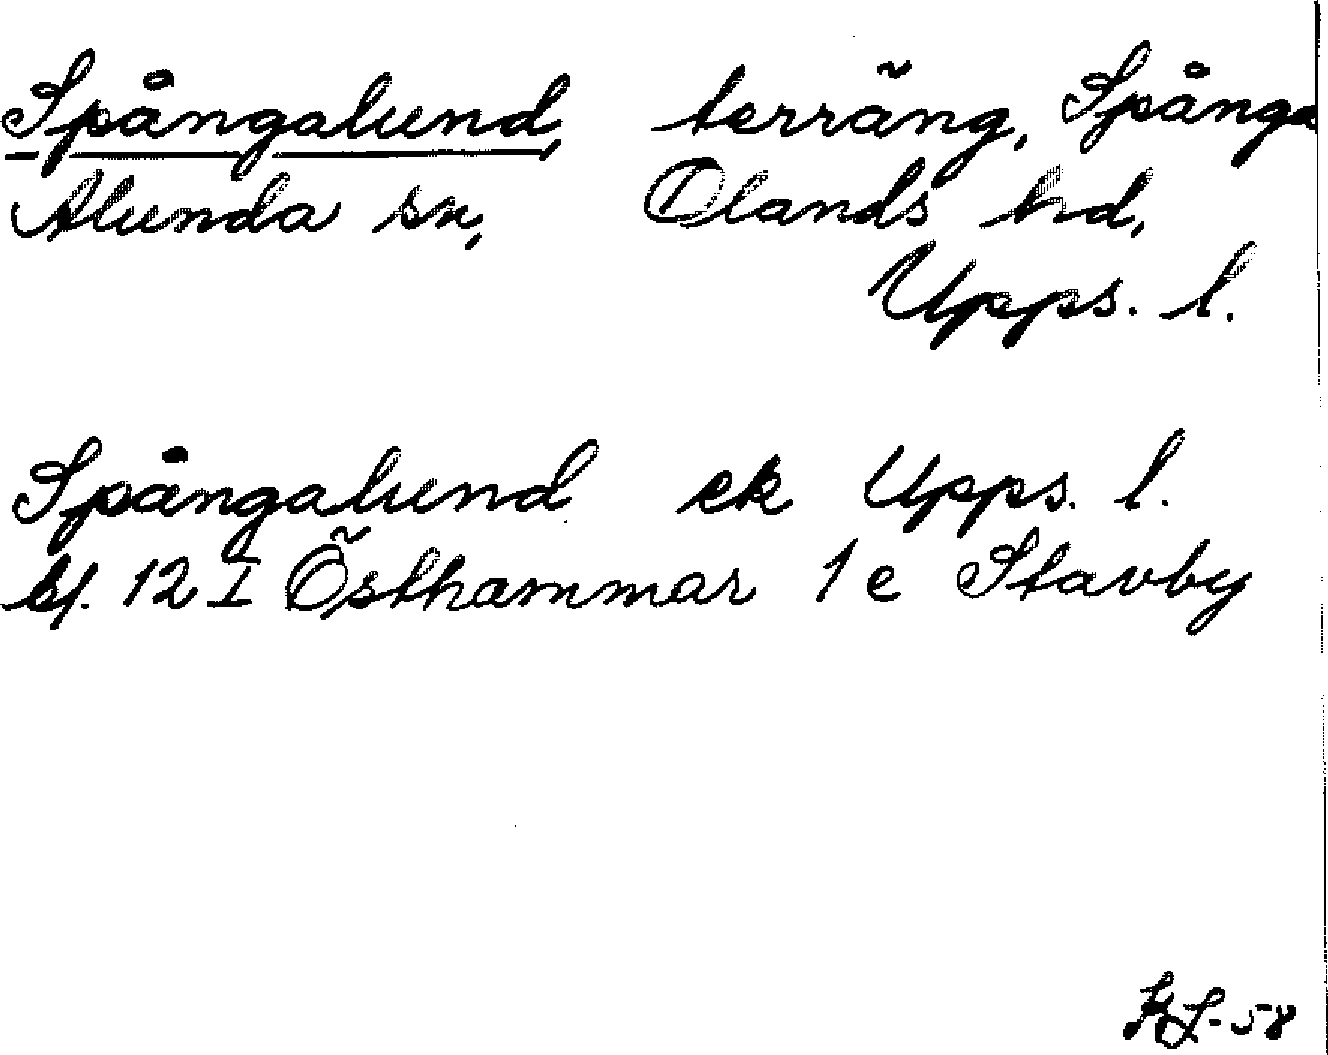 Spångalund, terräng, Spånga
Alunda sn, Olands hd,
Upps. l.
Spångalund ek Upps. l.
bl. 12 I Östhammar 1 e Stavby
-58